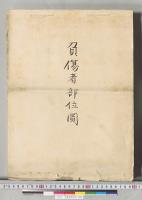 負傷者部位圖